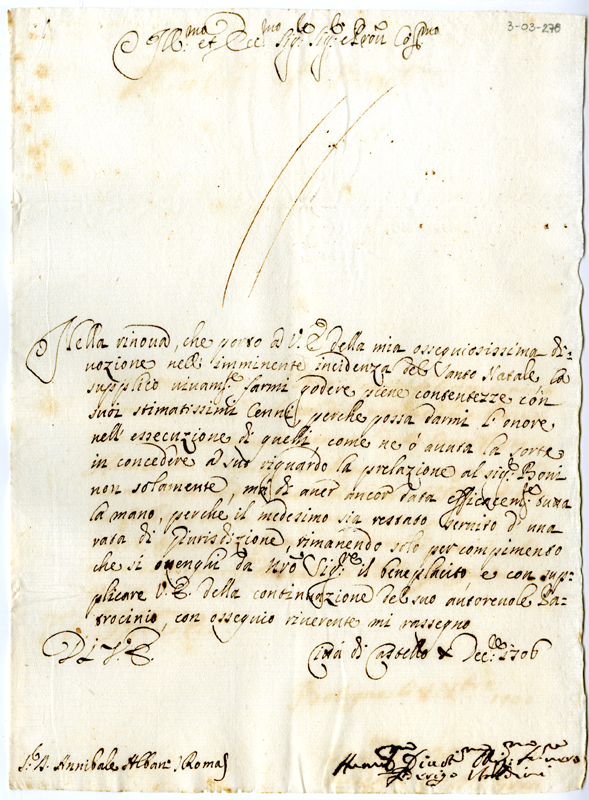 3-03-278
Ill:mo et Ecc:mo Sig:re Sig:re e Pron Col:mo
Nella rinova, che porto a V. E. della mia ossequiosissima di=
vozione nell' imminente incidenza del Santo Natale, la
supplico vivam:te farmi godere piene contentezze con
suoi stimatissimi Cenni, perche possa darmi l'onore
nell' essecuzione di quelli come ne ó avuta la sorte
in concedere a suo riguardo la prelazione al sig:r Boni
non solamente, mà di aver ancor data efficacem:te tutta
la mano, perche il medesimo sia restato servito d'una
rata di Giurisdizione, rimanendo solo per compimento
che si ottenghi da Nro Sig:re il beneplacito, e con sup=
plicare V. E. della continuazione del suo autorevole Pa=
trocinio, con ossequio riverente mi rassegno
Di V. E.
Città di Castello Dec: 1706
S:r D. Annibale Alban: Roma